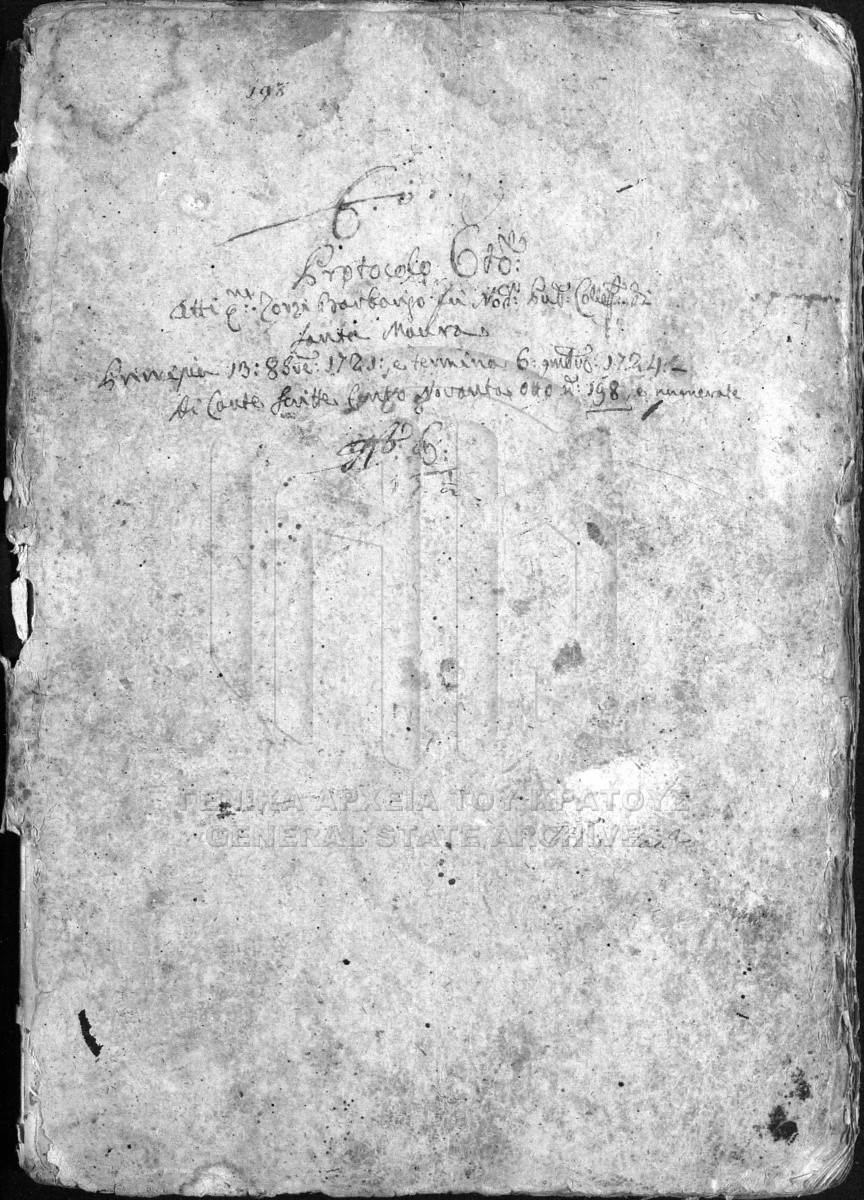 198
6
Protocolo 6to:
Atti qm: Zorzi Barbarigo fù Nodo: Pub:
Santa Maura
Principia 13: 8bre: 1721: e termina 6: 1724:
di Carte scritte Cento Novanta otto no: 198, e numerate
No: 6:
ΓΕΝΙΚΑ ΑΡΧΕΙΑ ΤΟΥ ΚΡΑΤΟΥΣ
GENERAL STATE ARCHIVES